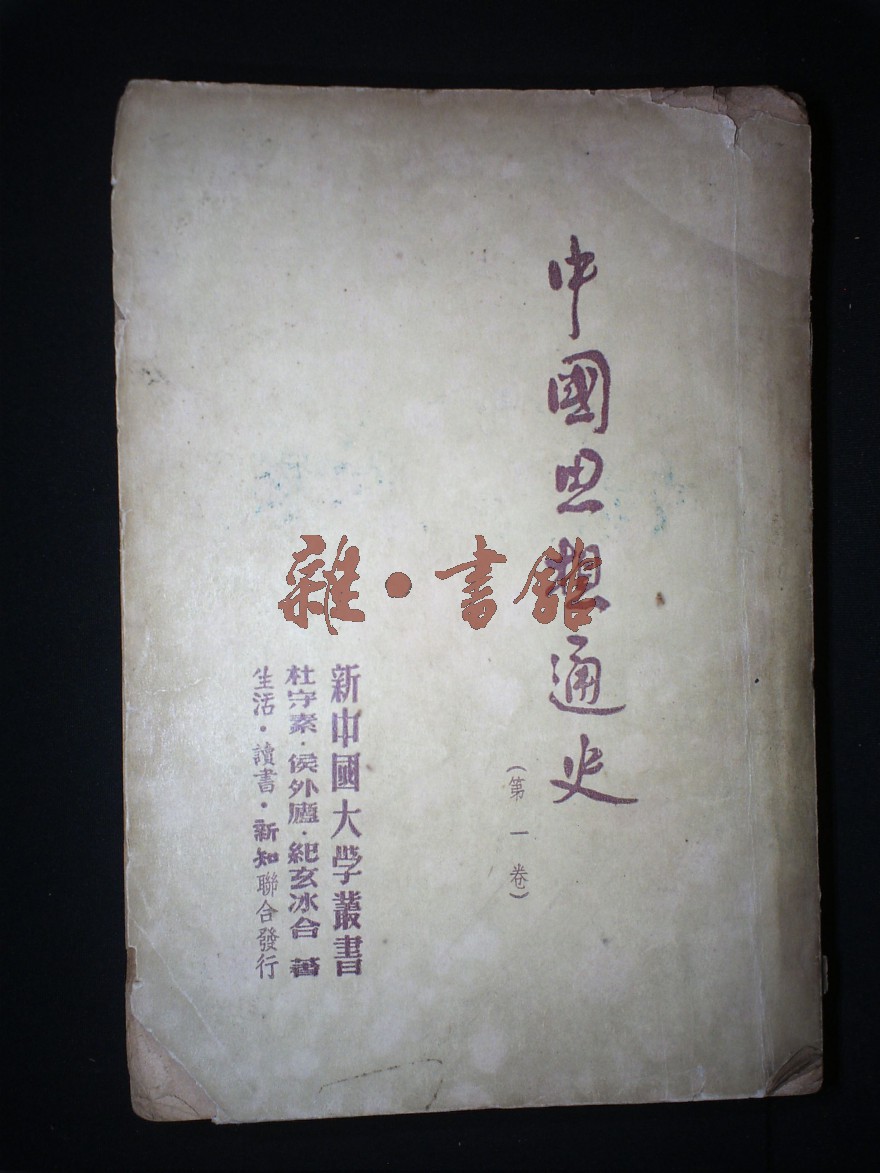 中國思想通史
（第一卷）
新中國大学叢書
杜守素·侯外廬·紀玄冰合著
生活·讀書·新知聯合發行
雜·書館